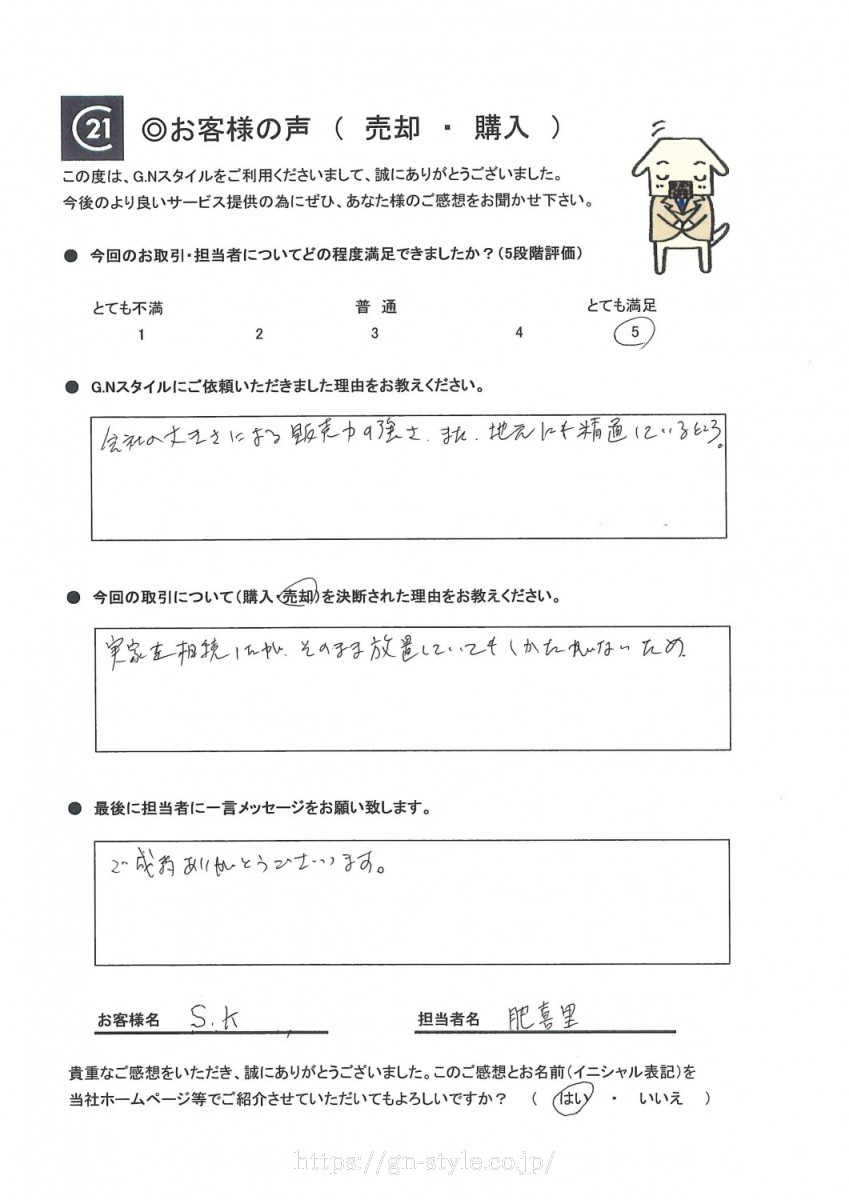 C21
◎お客様の声 ( 売却 ・ 購入 )
この度は、G.Nスタイルをご利用くださいまして、誠にありがとうございました。
今後のより良いサービス提供の為にぜひ、あなた様のご感想をお聞かせ下さい。
● 今回のお取引・担当者についてどの程度満足できましたか?(5段階評価)
とても不満 普 通 とても満足
1 2 3 4 5
● G.Nスタイルにご依頼いただきました理由をお教えください。
会社の大きさによる販売力の強さ、また、地元にも精通しているところ。
● 今回の取引について(購入・売却)を決断された理由をお教えください。
実家を相続したが、そのまま放置していてもしかたがないため
● 最後に担当者に一言メッセージをお願い致します。
ご成約ありがとうございます。
お客様名 S.K 担当者名 肥喜里
貴重なご感想をいただき、誠にありがとうございました。このご感想とお名前(イニシャル表記)を
当社ホームページ等でご紹介させていただいてもよろしいですか? ( はい ・ いいえ )
https://gn-style.co.jp/